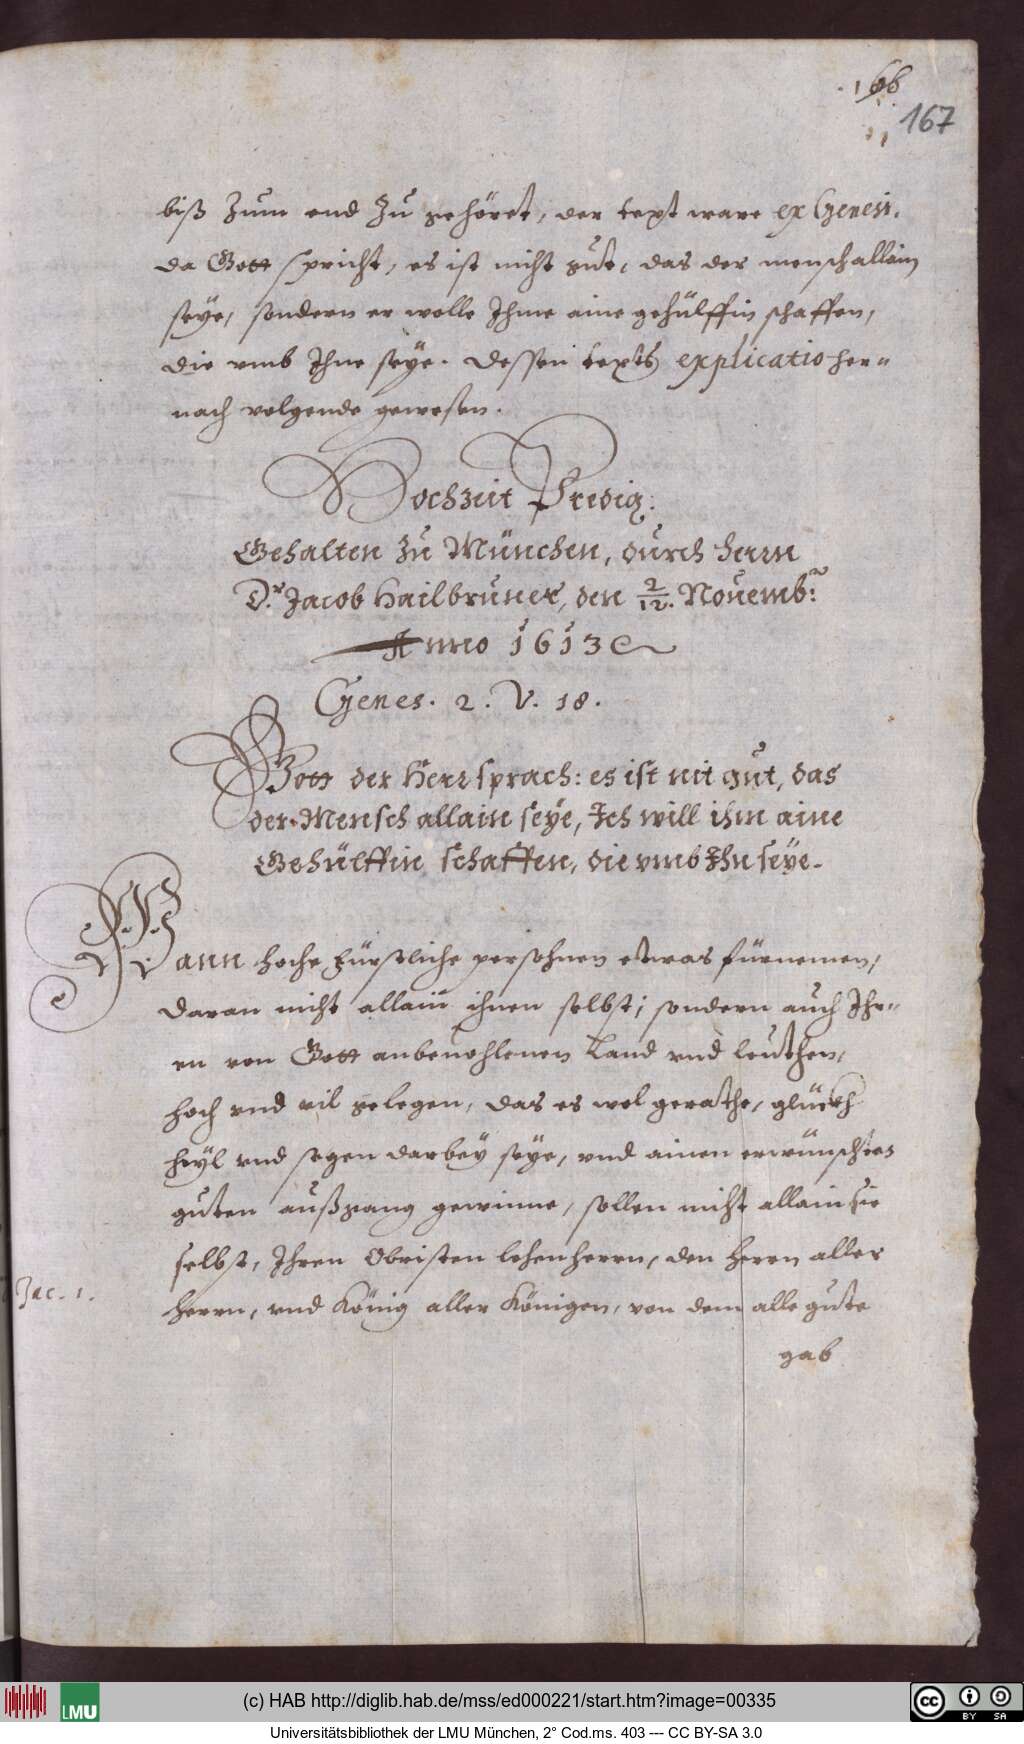 166
167
biß Zum end Zu gehöret, der text ware ex Genesi.
da Gott spricht, es ist nicht gut, das der mensch allain
seye, sondern er wolle Ihme aine gehülffin schaffen,
die vmb Ihne seye. Dessen texts explicatio her=
nach volgende gewesen.
Hochzeit Predig.
Gehalten Zu München, durch herrn
D.r Jacob Hailbruner, den 2/12. Nouemb:r
Anno 1613
Genes. 2. V. 18.
Gott der Herr sprach: es ist nit gut, das
der Mensch allain seye, Ich will ihm aine
Gehülffin schaffen, die vmb Ihn seye.
Wann hoche Fürstliche persohnen etwas fürnemen,
daran nicht allain ihnen selbst, sondern auch Ihr=
en von Gott anbeuohlenen Land vnd leuthen,
hoch vnd vil gelegen, das es wol gerathe, glückh
heyl vnd segen darbey seye, vnd ainen erwünschten
guten außgang gewinne, sollen nicht allain sie
selbst, Ihren Obristen lehenherrn, den herrn aller
Jac. 1.
herrn, vnd König aller Königen, von dem alle gute
gab
(c) HAB http://diglib.hab.de/mss/ed000221/start.htm?image=00335
LMU
cc BY SA
Universitätsbibliothek der LMU München, 2° Cod.ms. 403 --- CC BY-SA 3.0